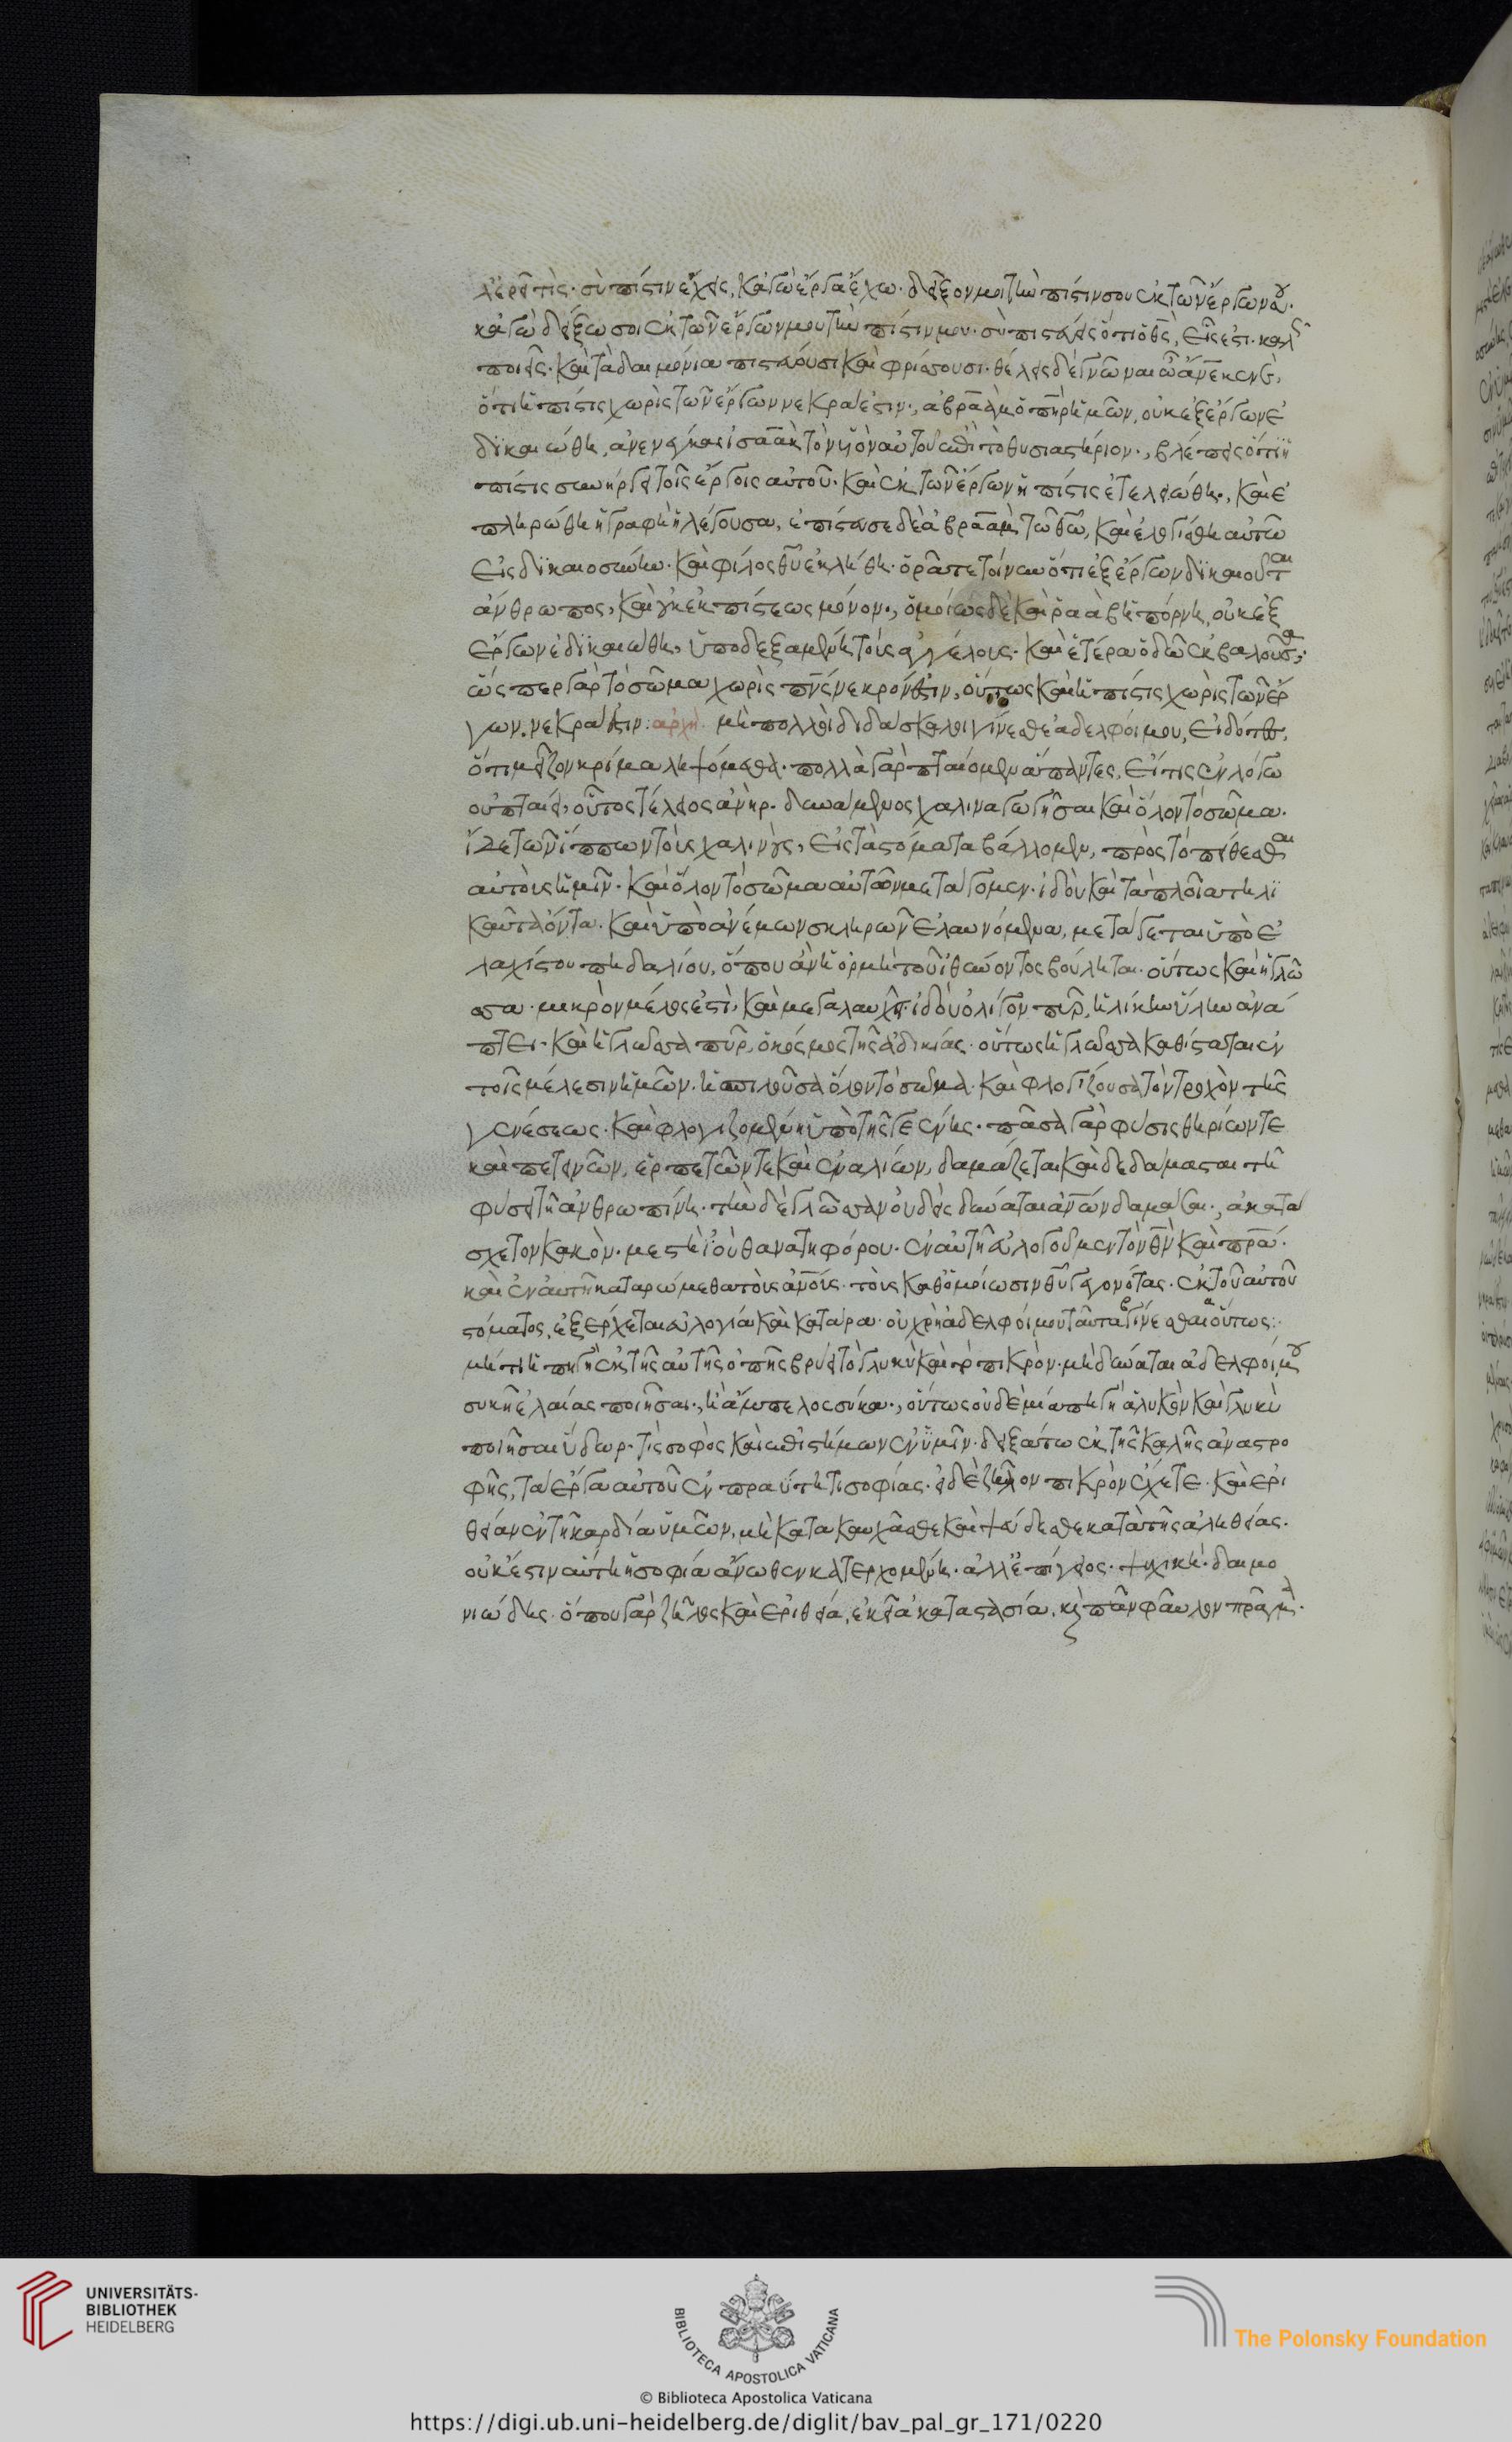 λ' ἐρεῖ τίς· σὺ πίστιν ἔχεις, κἀγὼ ἔργα ἔχω· δεῖξον μοι τὴν πίστιν σου ἐκ τῶν ἔργων σου·
κἀγὼ δείξω σοι ἐκ τῶν ἔργων μου τὴν πίστιν μου· σὺ πιστεύεις ὅτι ὁ θς, εἷς ἐστι· καλῶς
ποιεῖς· καὶ τὰ δαιμόνια πιστεύουσι καὶ φρίσσουσι· θέλεις δὲ γνῶναι ὦ ἄνε κενέ,
ὅτι ἡ πίστις χωρὶς τῶν ἔργων νεκρά ἐστιν., ἀβραὰμ ὁ πηρ ἡμῶν, οὐκ ἐξ ἔργων ἐ
δικαιώθη, ἀνενέγκας ἰσαὰκ τὸν υἱὸν αὐτοῦ ἐπὶ τὸ θυσιαστήριον., βλέπεις ὅτι ἡ
πίστις συνήργει τοῖς ἔργοις αὐτοῦ· καὶ ἐκ τῶν ἔργων ἡ πίστις ἐτελειώθη., καὶ ἐ
πληρώθη ἡ γραφὴ ἡ λέγουσα, ἐπίστευσε δὲ ἀβραὰμ τῶ θω, καὶ ἐλογίσθη αὐτῶ
εἰς δικαιοσύνην· καὶ φίλος θυ ἐκλήθη· ὁρᾶτε τοίνυν ὅτι ἐξ ἔργων δικαιοῦται
ἄνθρωπος, καὶ οὐκ ἐκ πίστεως μόνον., ὁμοίως δὲ καὶ ῥαὰβ ἡ πόρνη, οὐκ ἐξ
ἔργων ἐδικαιώθη, ὑποδεξαμένη τοὺς ἀγγέλους· καὶ ἑτέρα ὁδῶ ἐκβαλοῦσα;·
ὥσπερ γὰρ τὸ σῶμα χωρὶς πνς νεκρόν ἐστιν, οὕτως καὶ ἡ πίστις χωρὶς τῶν ἔρ
γων, νεκρά ἐστιν: αρχὴ μὴ πολλοὶ διδάσκαλοι γίνεσθε ἀδελφοί μου, εἰδότες,
ὅτι μεῖζον κρίμα ληψόμεθα· πολλὰ γὰρ πταίομεν ἅπαντες, εἴ τις ἐν λόγω
οὐ πταίει, οὗτος τέλειος ἀνὴρ· δυνάμενος χαλιναγωγῆσαι καὶ ὅλον τὸ σῶμα·
ἴδε τῶν ἵππων τοὺς χαλινοὺς, εἰς τὰ στόματα βάλλομεν, πρὸς τὸ πείθεσθαι
αὐτοὺς ἡμῖν· καὶ ὅλον τὸ σῶμα αὐτῶν μετάγομεν· ἰδοὺ καὶ τὰ πλοῖα τηλι
καῦτα ὄντα· καὶ ὑπὸ ἀνέμων σκληρῶν ἐλαυνόμενα, μετάγεται ὑπὸ ἐ
λαχίστου πηδαλίου, ὅπου ἂν ἡ ὁρμὴ τοῦ ἰθύνοντος βούληται· οὕτως καὶ ἡ γλῶ
σσα· μικρὸν μέλος ἐστὶ, καὶ μεγαλαυχεῖ· ἰδοὺ ὀλίγον πῦρ, ἡλίκην ὕλην ἀνά
πτει· καὶ ἡ γλῶσσα πῦρ, ὁ κόσμος τῆς ἀδικίας· οὕτως ἡ γλῶσσα καθίσταται ἐν
τοῖς μέλεσιν ἡμῶν· ἡ σπιλοῦσα ὅλον τὸ σῶμα· καὶ φλογίζουσα τὸν τροχὸν τῆς
γενέσεως· καὶ φλογιζομένη ὑπὸ τῆς γεένης· πᾶσα γὰρ φύσις θηρίων τε
καὶ πετεινῶν, ἑρπετῶν τε καὶ ἐναλίων, δαμάζεται καὶ δεδάμασται τῆ
φύσει τῆ ἀνθρωπίνη· τὴν δὲ γλῶσσαν οὐδεὶς δύναται ἀνων δαμάσαι., ἀκατά
σχετον κακὸν· μεστὴ ἰοῦ θανατηφόρου· ἐν αὐτῆ εὐλογοῦμεν τὸν θν καὶ πρα·
καὶ ἐν αὐτῆ καταρώμεθα τοὺς ἀνους· τοὺς καθ' ὁμοίωσιν θυ γεγονότας· ἐκ τοῦ αὐτοῦ
στόματος, ἐξέρχεται εὐλογία καὶ κατάρα· οὐ χρὴ ἀδελφοί μου ταῦτα β γίνεσθαι α οὕτως:·
μήτι ἡ πηγὴ ἐκ τῆς αὐτῆς ὀπῆς βρύει τὸ γλυκὺ καὶ τὸ πικρὸν· μὴ δύναται ἀδελφοί μου
συκῆ ἐλαίας ποιῆσαι., ἢ ἄμπελος σύκα., οὕτως οὐδὲ μία πηγὴ ἁλυκὸν καὶ γλυκὺ
ποιῆσαι ὕδωρ· τίς σοφὸς καὶ ἐπιστήμων ἐν ὑμῖν· δειξάτω ἐκ τῆς καλῆς ἀναστρο
φῆς, τὰ ἔργα αὐτοῦ ἐν πραΰτητι σοφίας· εἰ δὲ ζῆλον πικρὸν ἔχετε· καὶ ἐρι
θείαν ἐν τῆ καρδία ὑμῶν, μὴ κατακαυχᾶσθε καὶ ψεύδεσθε κατὰ τῆς ἀληθείας·
οὐκ ἔστιν αὕτη ἡ σοφία ἄνωθεν κατερχομένη· ἀλλ' ἐπίγειος· ψυχική· δαιμο
νιώδης· ὅπου γὰρ ζῆλος καὶ ἐριθεία, ἐκεῖ ἀκαταστασία, κὶ πᾶν φαῦλον πρᾶγμα·
UNIVERSITÄTS-
BIBLIOTHEK
HEIDELBERG
BIBLIOTECA APOSTOLICA VATICANA
© Biblioteca Apostolica Vaticana
The Polonsky Foundation
https://digi.ub.uni-heidelberg.de/diglit/bav_pal_gr_171/0220